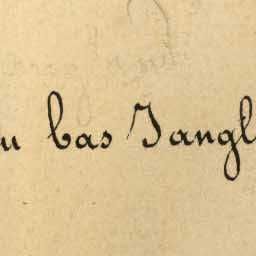 u bas Jangl